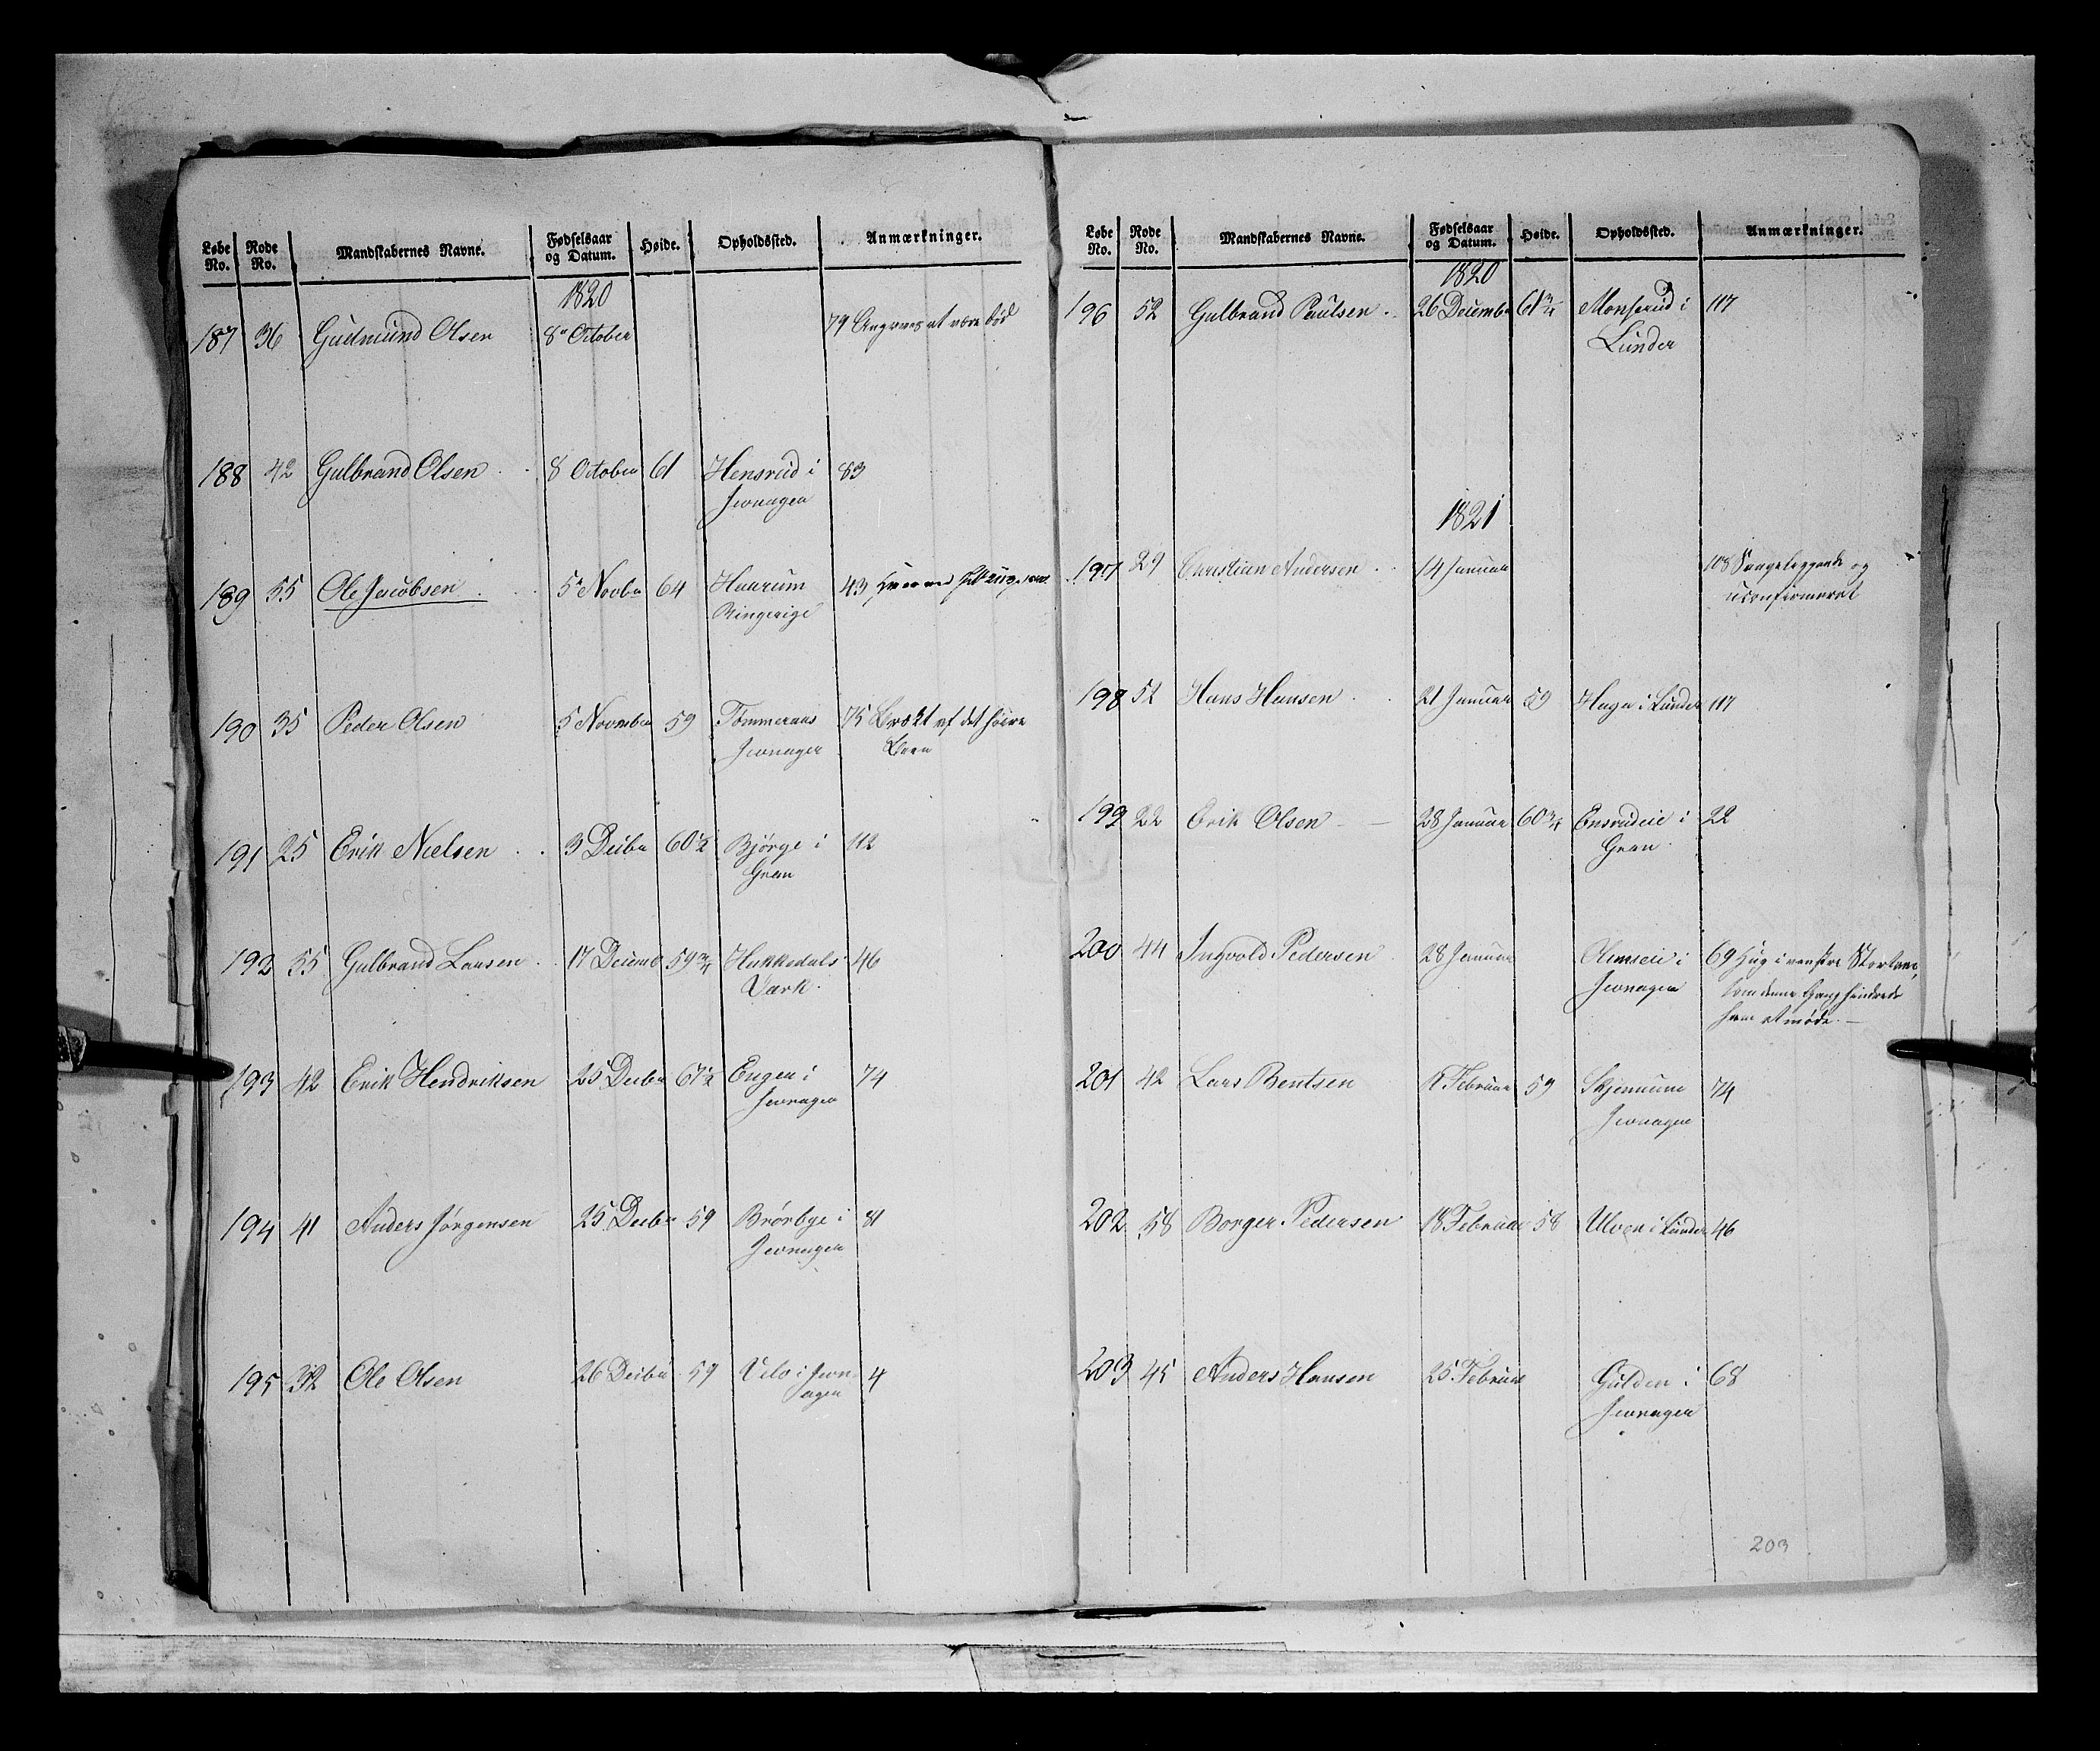 Løbe No. Rode No. Mandskabernes Navne. Fødselsaar og Datum. Høide. Opholdssted. Anmærkninger.
1820
187 36 Gudmund Olsen 8de October 79 Angives at være død
188 42 Gulbrand Olsen 8 October 61 Hensrud i 83
Jevnager
189 55 Ole Jacobsen 5te Novbr 64 Haarum 43
Ringerige
190 35 Peder Olsen 5 Novembr 59 Tømmeraas 75 Brækt af det høire
Jevnager Been
191 25 Erik Nielsen 3 Decbr 60 1/2 Bjørge i 112
Gran
192 55 Gulbrand Larsen 17 Decemb 59 3/4 Hakkedals 46
Værk.
193 42 Erik Hendriksen 25 Decbr 67 1/2 Engen i 74
Jevnager
194 41 Anders Jørgensen 25 Decbr 59 Brørbye i 81
Jevnager
195 32 Ole Olsen 26 Decbr 59 Velo i Jevn 4
ager
Løbe No. Rode No. Mandskabernes Navne. Fødselsaar og Datum. Høide. Opholdssted. Anmærkninger.
1820
196 52 Gulbrand Paulsen 26 Decembr 61 3/4 Monserud i 117
Lunder
1821
197 29 Christian Andersen 14 Januar 108 Sengeliggende og
uconfirmeret
198 52 Hans Hansen 21 Januar 59 Haga i Lunder 117
199 22 Erik Olsen 28 Januar 60 3/4 Ensrudeie i 22
Gran
200 44 Ingvold Pedersen 28 Januar Olimseie i 69 Hug i venstre Stortaae,
Jevnager som denne Gang hindrede
ham at møde. —
201 42 Lars Bentsen Februar 59 Skjerumm 74
Jevnager
202 58 Borger Pedersen 18 Februar 58 Ulven i Lunder 46
203 45 Anders Hansen 25 Februar Gulden i 68
Jevnager
203